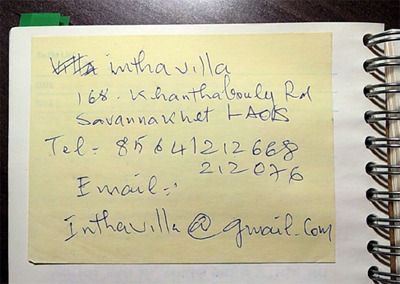 inthavilla
168. Khanthabouly Rd
Savannakhet LAOS
Tel= 85641212668
212076
Email=
Inthavilla@gmail.com